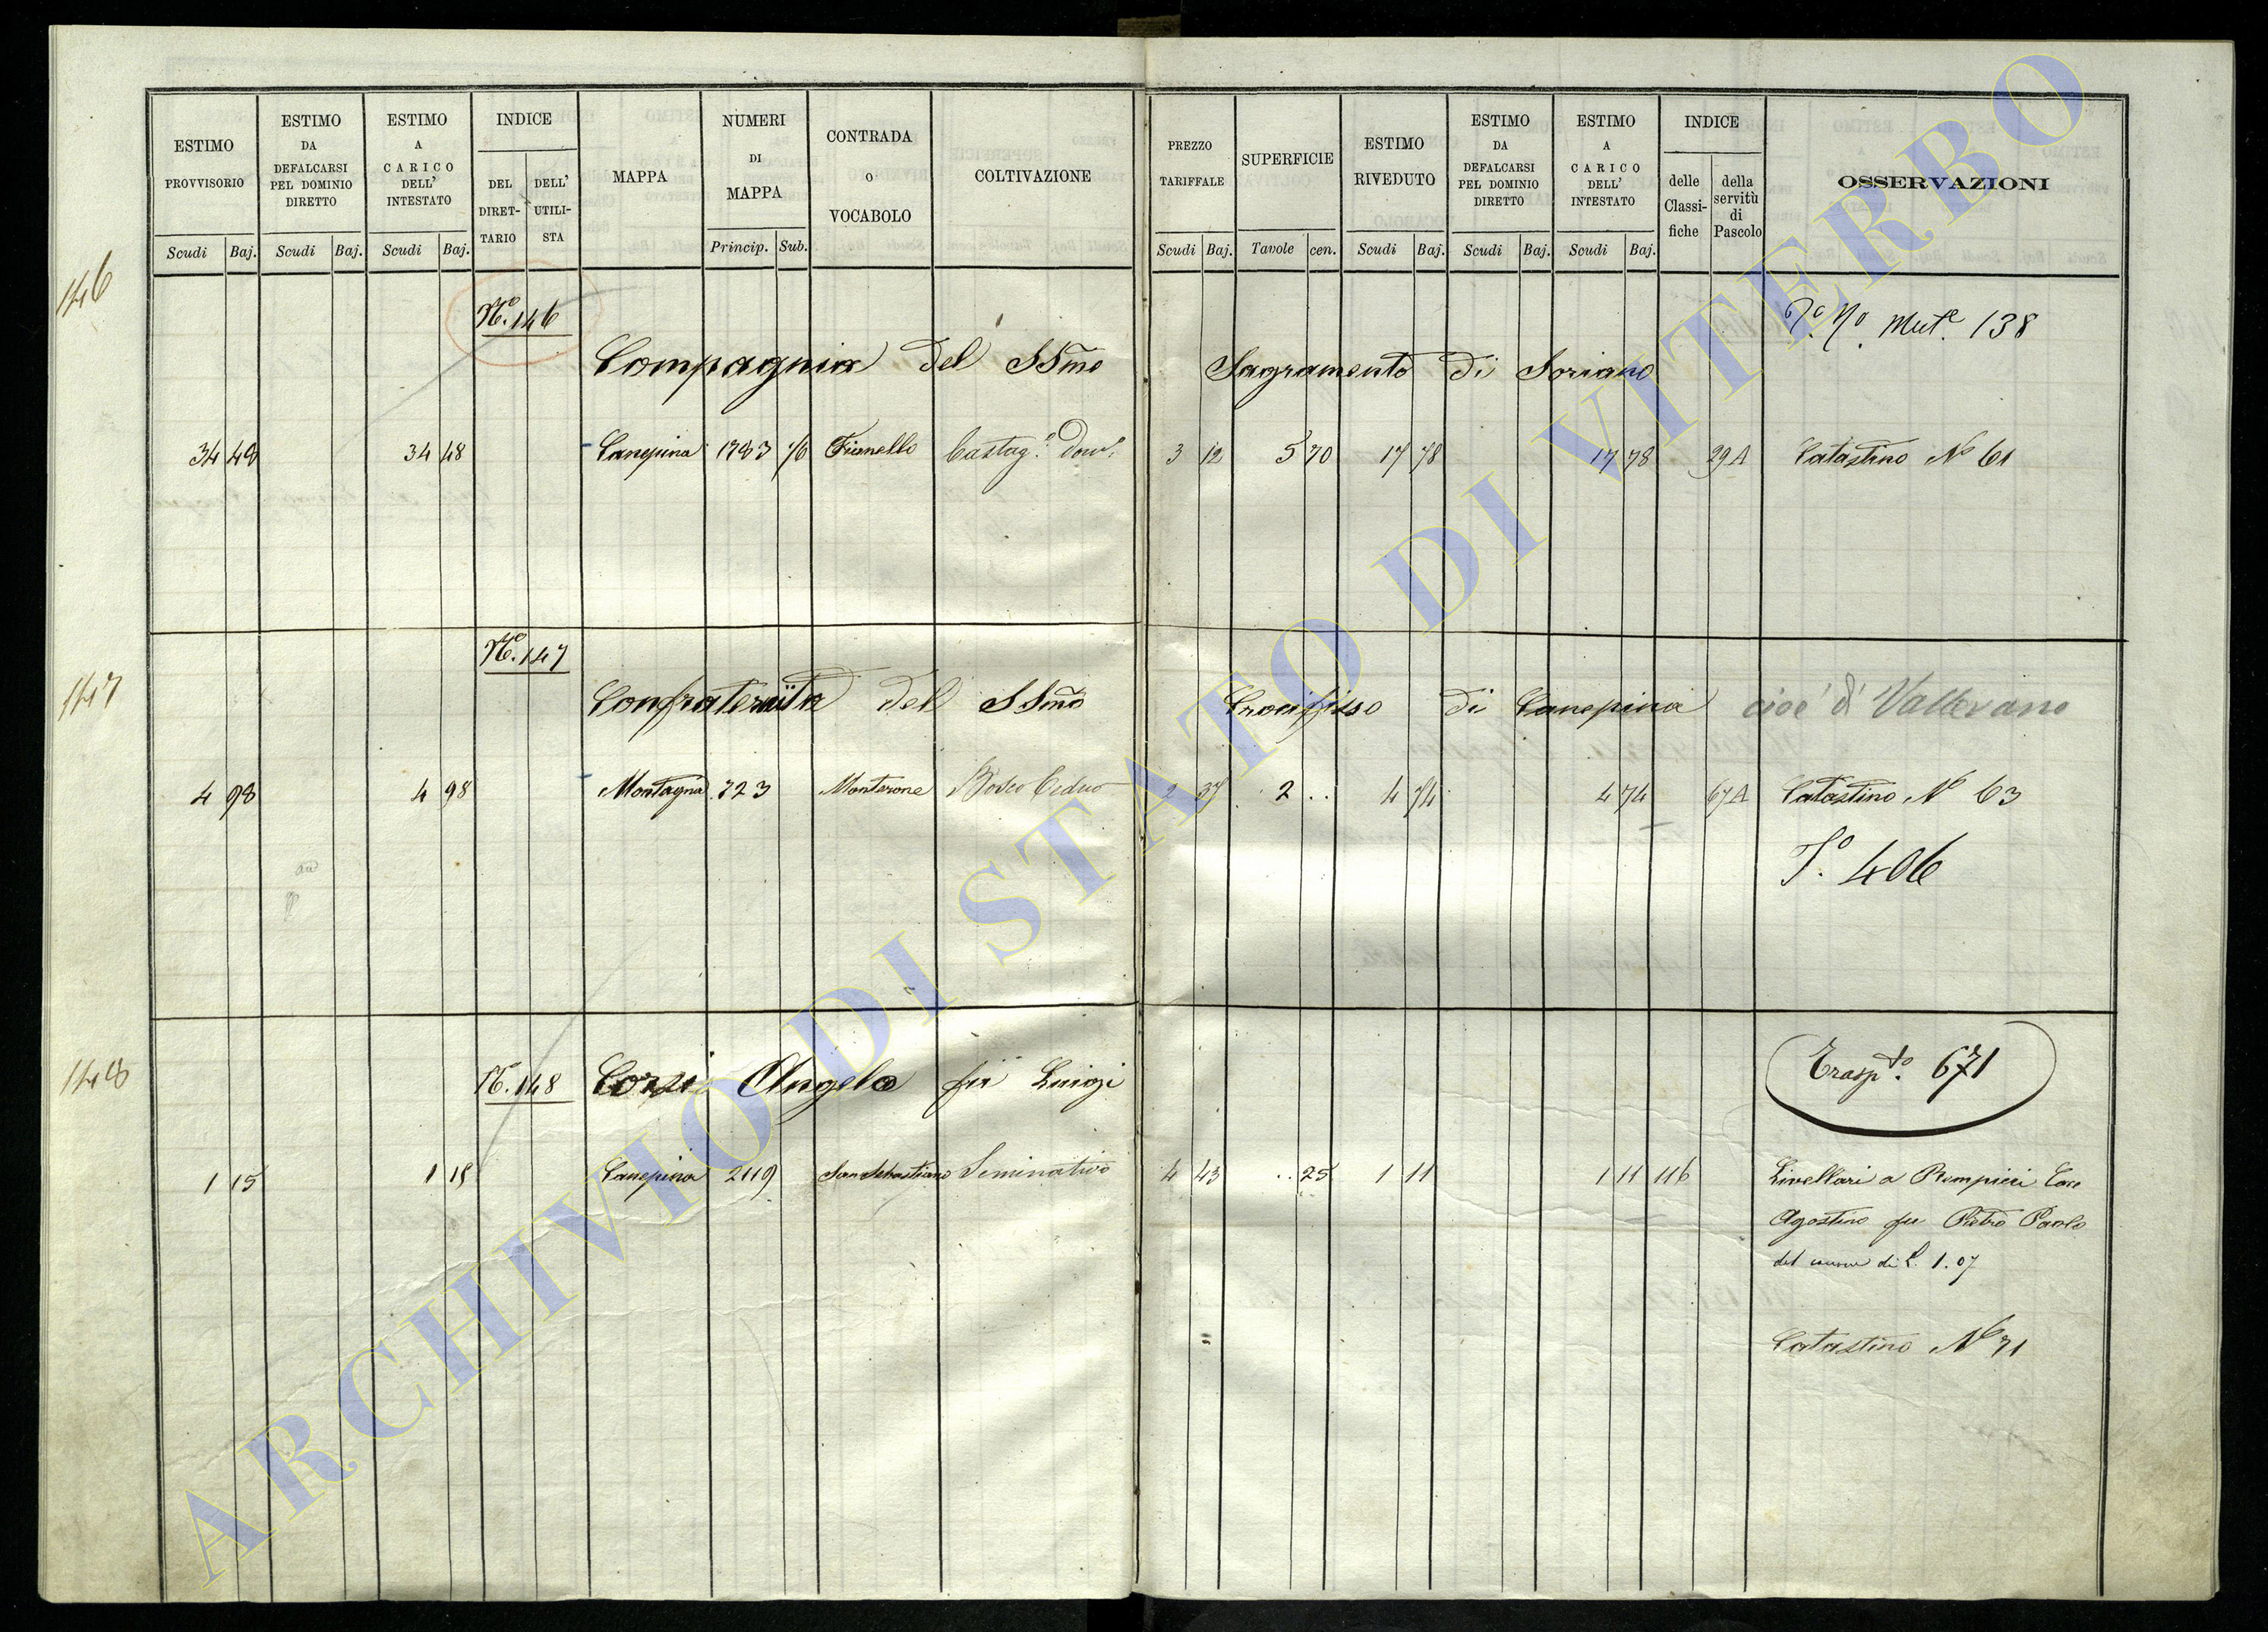 ESTIMO PROVVISORIO
ESTIMO DA DEFALCARSI PEL DOMINIO DIRETTO
ESTIMO A CARICO DELL' INTESTATO
INDICE
DEL DIRET-TARIO
DELL' UTILI-STA
MAPPA
NUMERI DI MAPPA
CONTRADA O VOCABOLO
COLTIVAZIONE
PREZZO TARIFFALE
SUPERFICIE
ESTIMO RIVEDUTO
ESTIMO DA DEFALCARSI PEL DOMINIO DIRETTO
ESTIMO A CARICO DELL' INTESTATO
INDICE
delle Classi-fiche
della servitù di Pascolo
OSSERVAZIONI
Scudi Baj. Scudi Baj. Scudi Baj. Princip. Sub. Scudi Baj. Tavole cen. Scudi Baj. Scudi Baj. Scudi Baj.
146
No. 146
Mut.e 138
Compagnia del SSmo Sagramento di Soriano
34 48 34 48 Canepina 1783 Castag.o 3 12 5 70 17 78 17 78 29A Catastino No 61
147
No. 147
Confraternita del SSmo Crocifisso di Canepina cioè di Vallerano
4 98 4 98 Montagna 723 Monterone Bosco Ceduo 2 37 2 .. 4 74 4 74 67A Catastino No 63
406
148
No. 148 Corsi Angelo fu Luigi
Trasp.to 671
1 15 1 15 Canepina 2119 San Sebastiano Seminativo 4 43 .. 25 1 11 1 11 116 Livellari a
Agostino fu Pietro Paolo
del canone di L. 1.07
Catastino No 71
ARCHIVIO DI STATO DI VITERBO